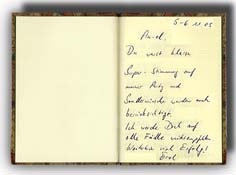 5-6 11 05
Du warst klasse
Super-Stimmung auf
unserer Party und
Sonderwünsche wurden auch
berücksichtigt.
Ich werde Dich auf
alle Fälle weiterempfehlen.
Weiterhin viel Erfolg!